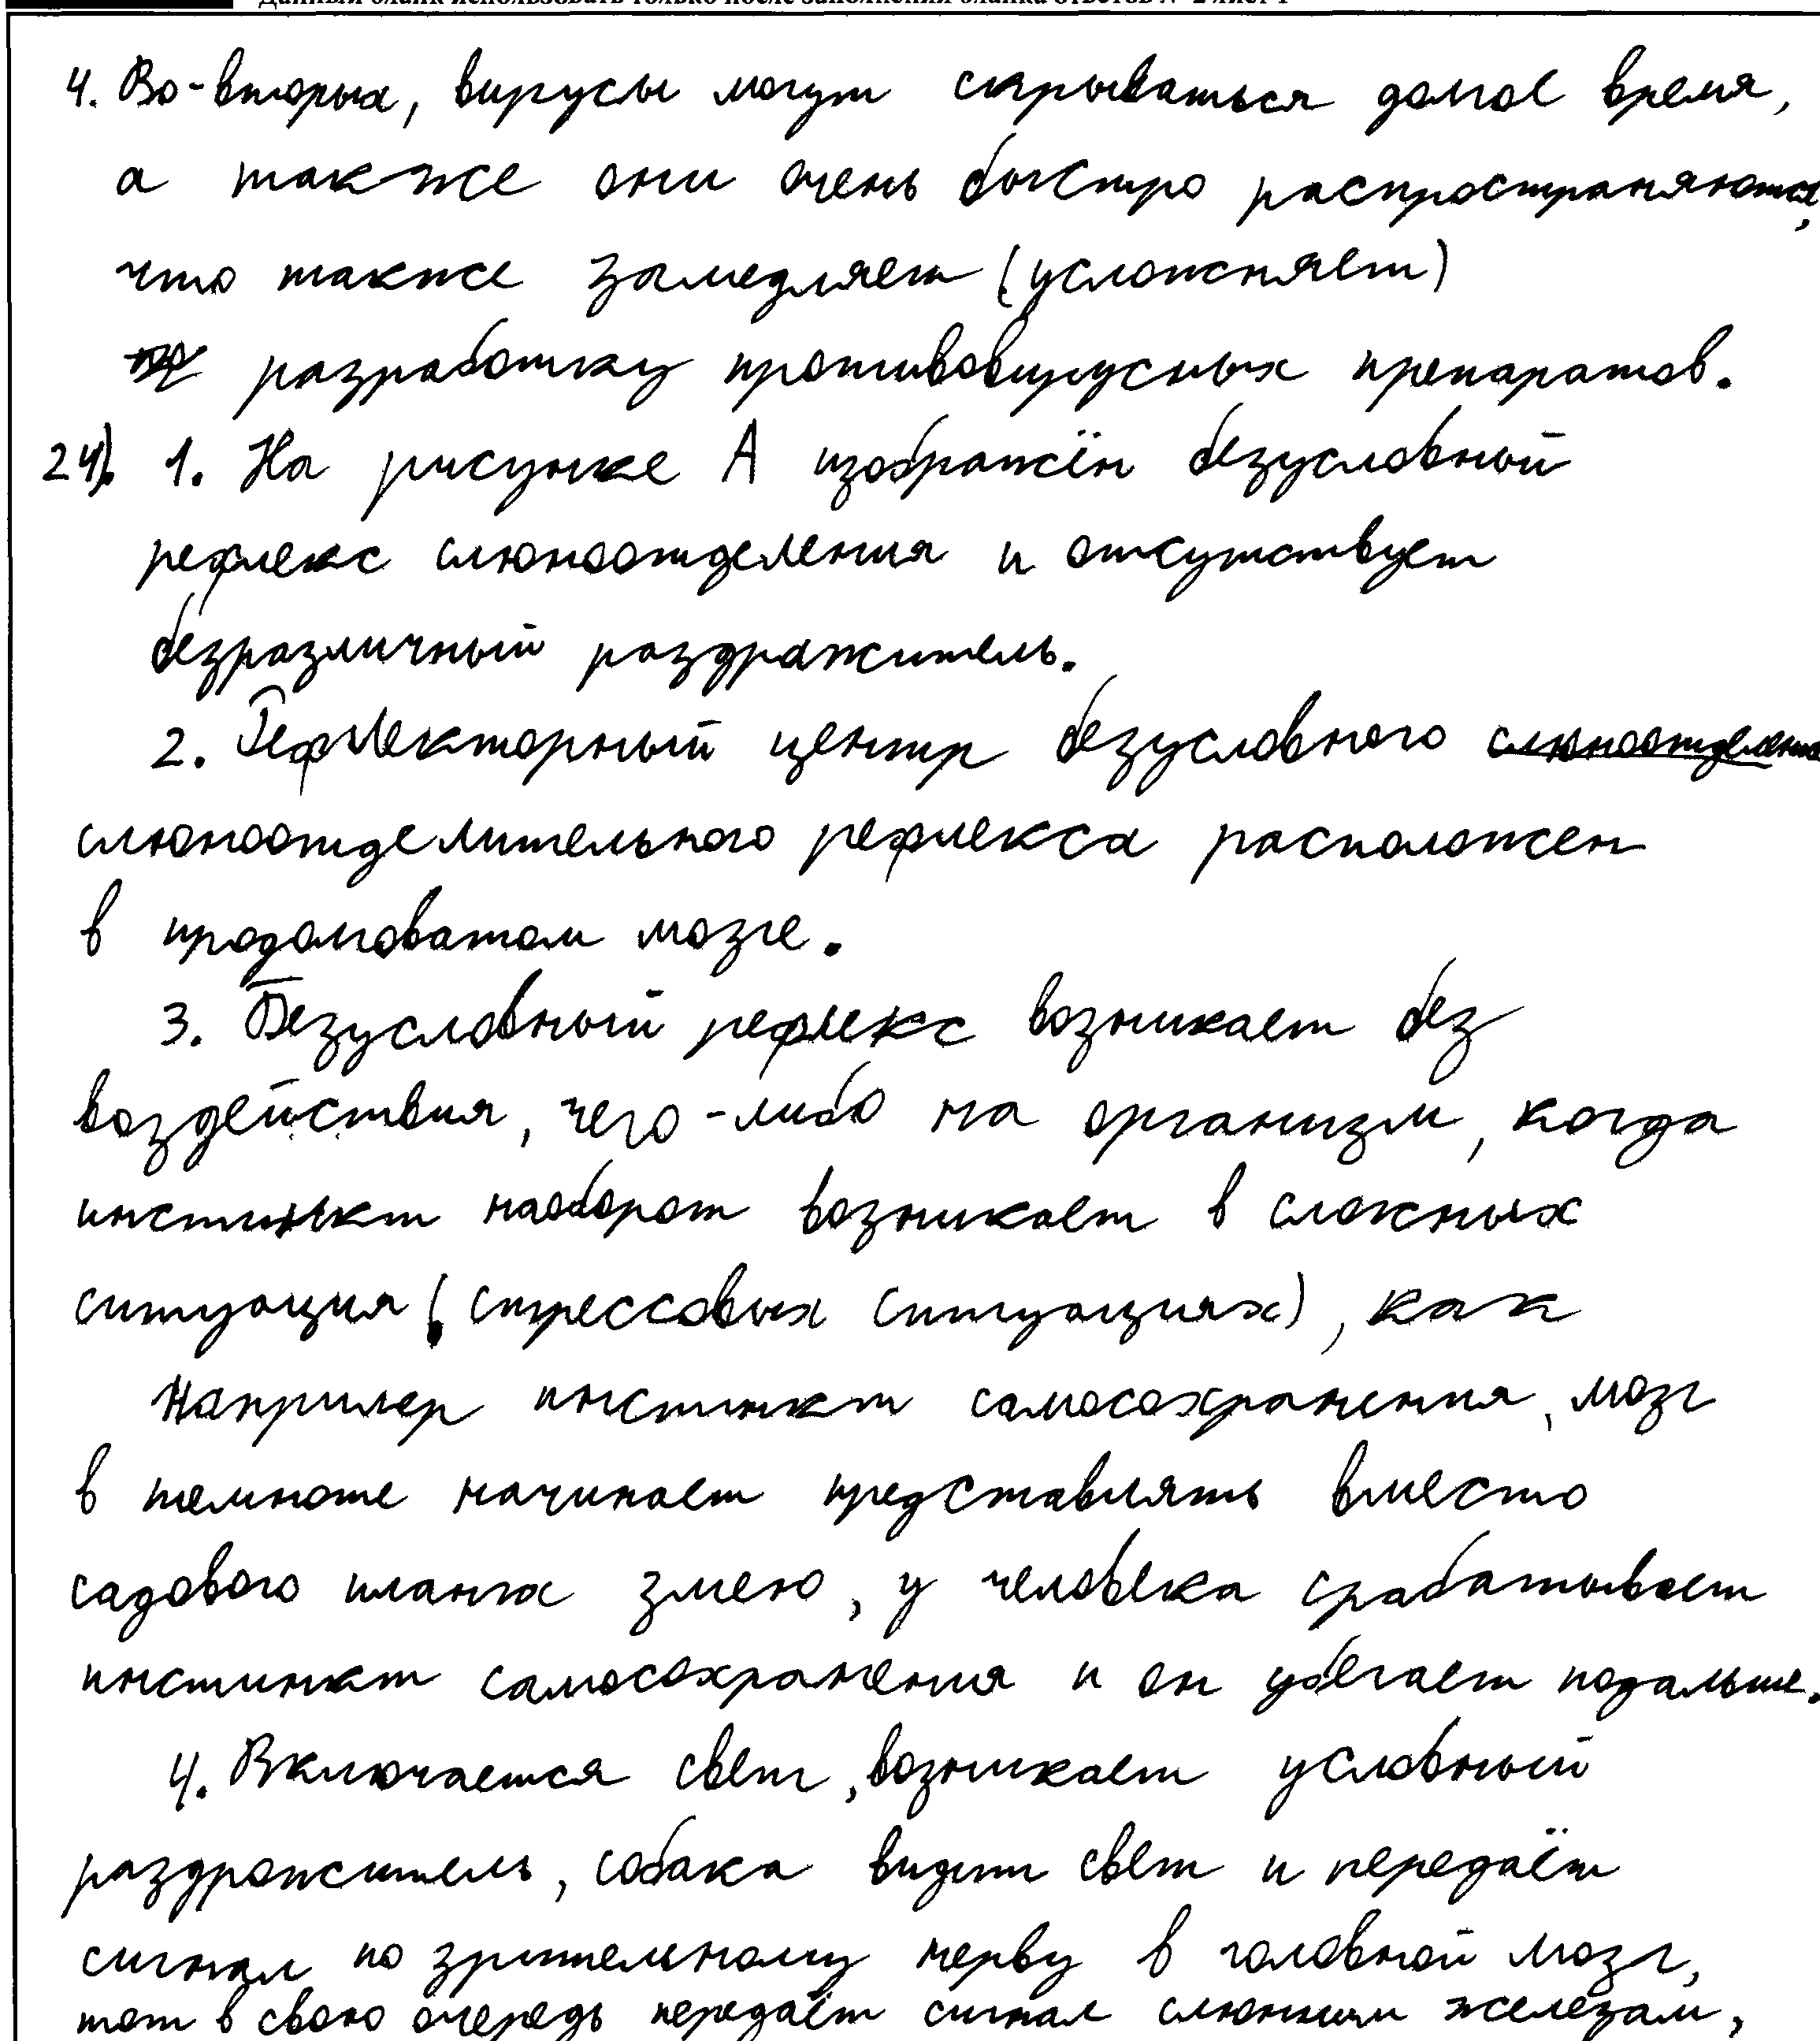 4. Во-вторых, вирусы могут скрываться долгое время,
а также они очень быстро распространяются,
что также замедляет (усложняет)
разработку противовирусных препаратов.
24). 1. На рисунке А изображён безусловный
рефлекс слюноотделения и отсутствует
безразличный раздражитель.
2. Рефлекторный центр безусловного слюноотделения
слюноотделительного рефлекса расположен
в продолговатом мозге.
3. Безусловный рефлекс возникает без
воздействия, чего-либо на организм, когда
инстинкт наоборот возникает в сложных
ситуация (стрессовых ситуациях), как
Например инстинкт самосохранения, мозг
в темноте начинает представлять вместо
садового шланга змею, у человека срабатывает
инстинкт самосохранения и он убегает подальше.
4. Включается свет, возникает условный
раздражитель, собака видит свет и передаёт
сигнал по зрительному нерву в головной мозг,
тот в свою очередь передаёт сигнал слюнным железам,